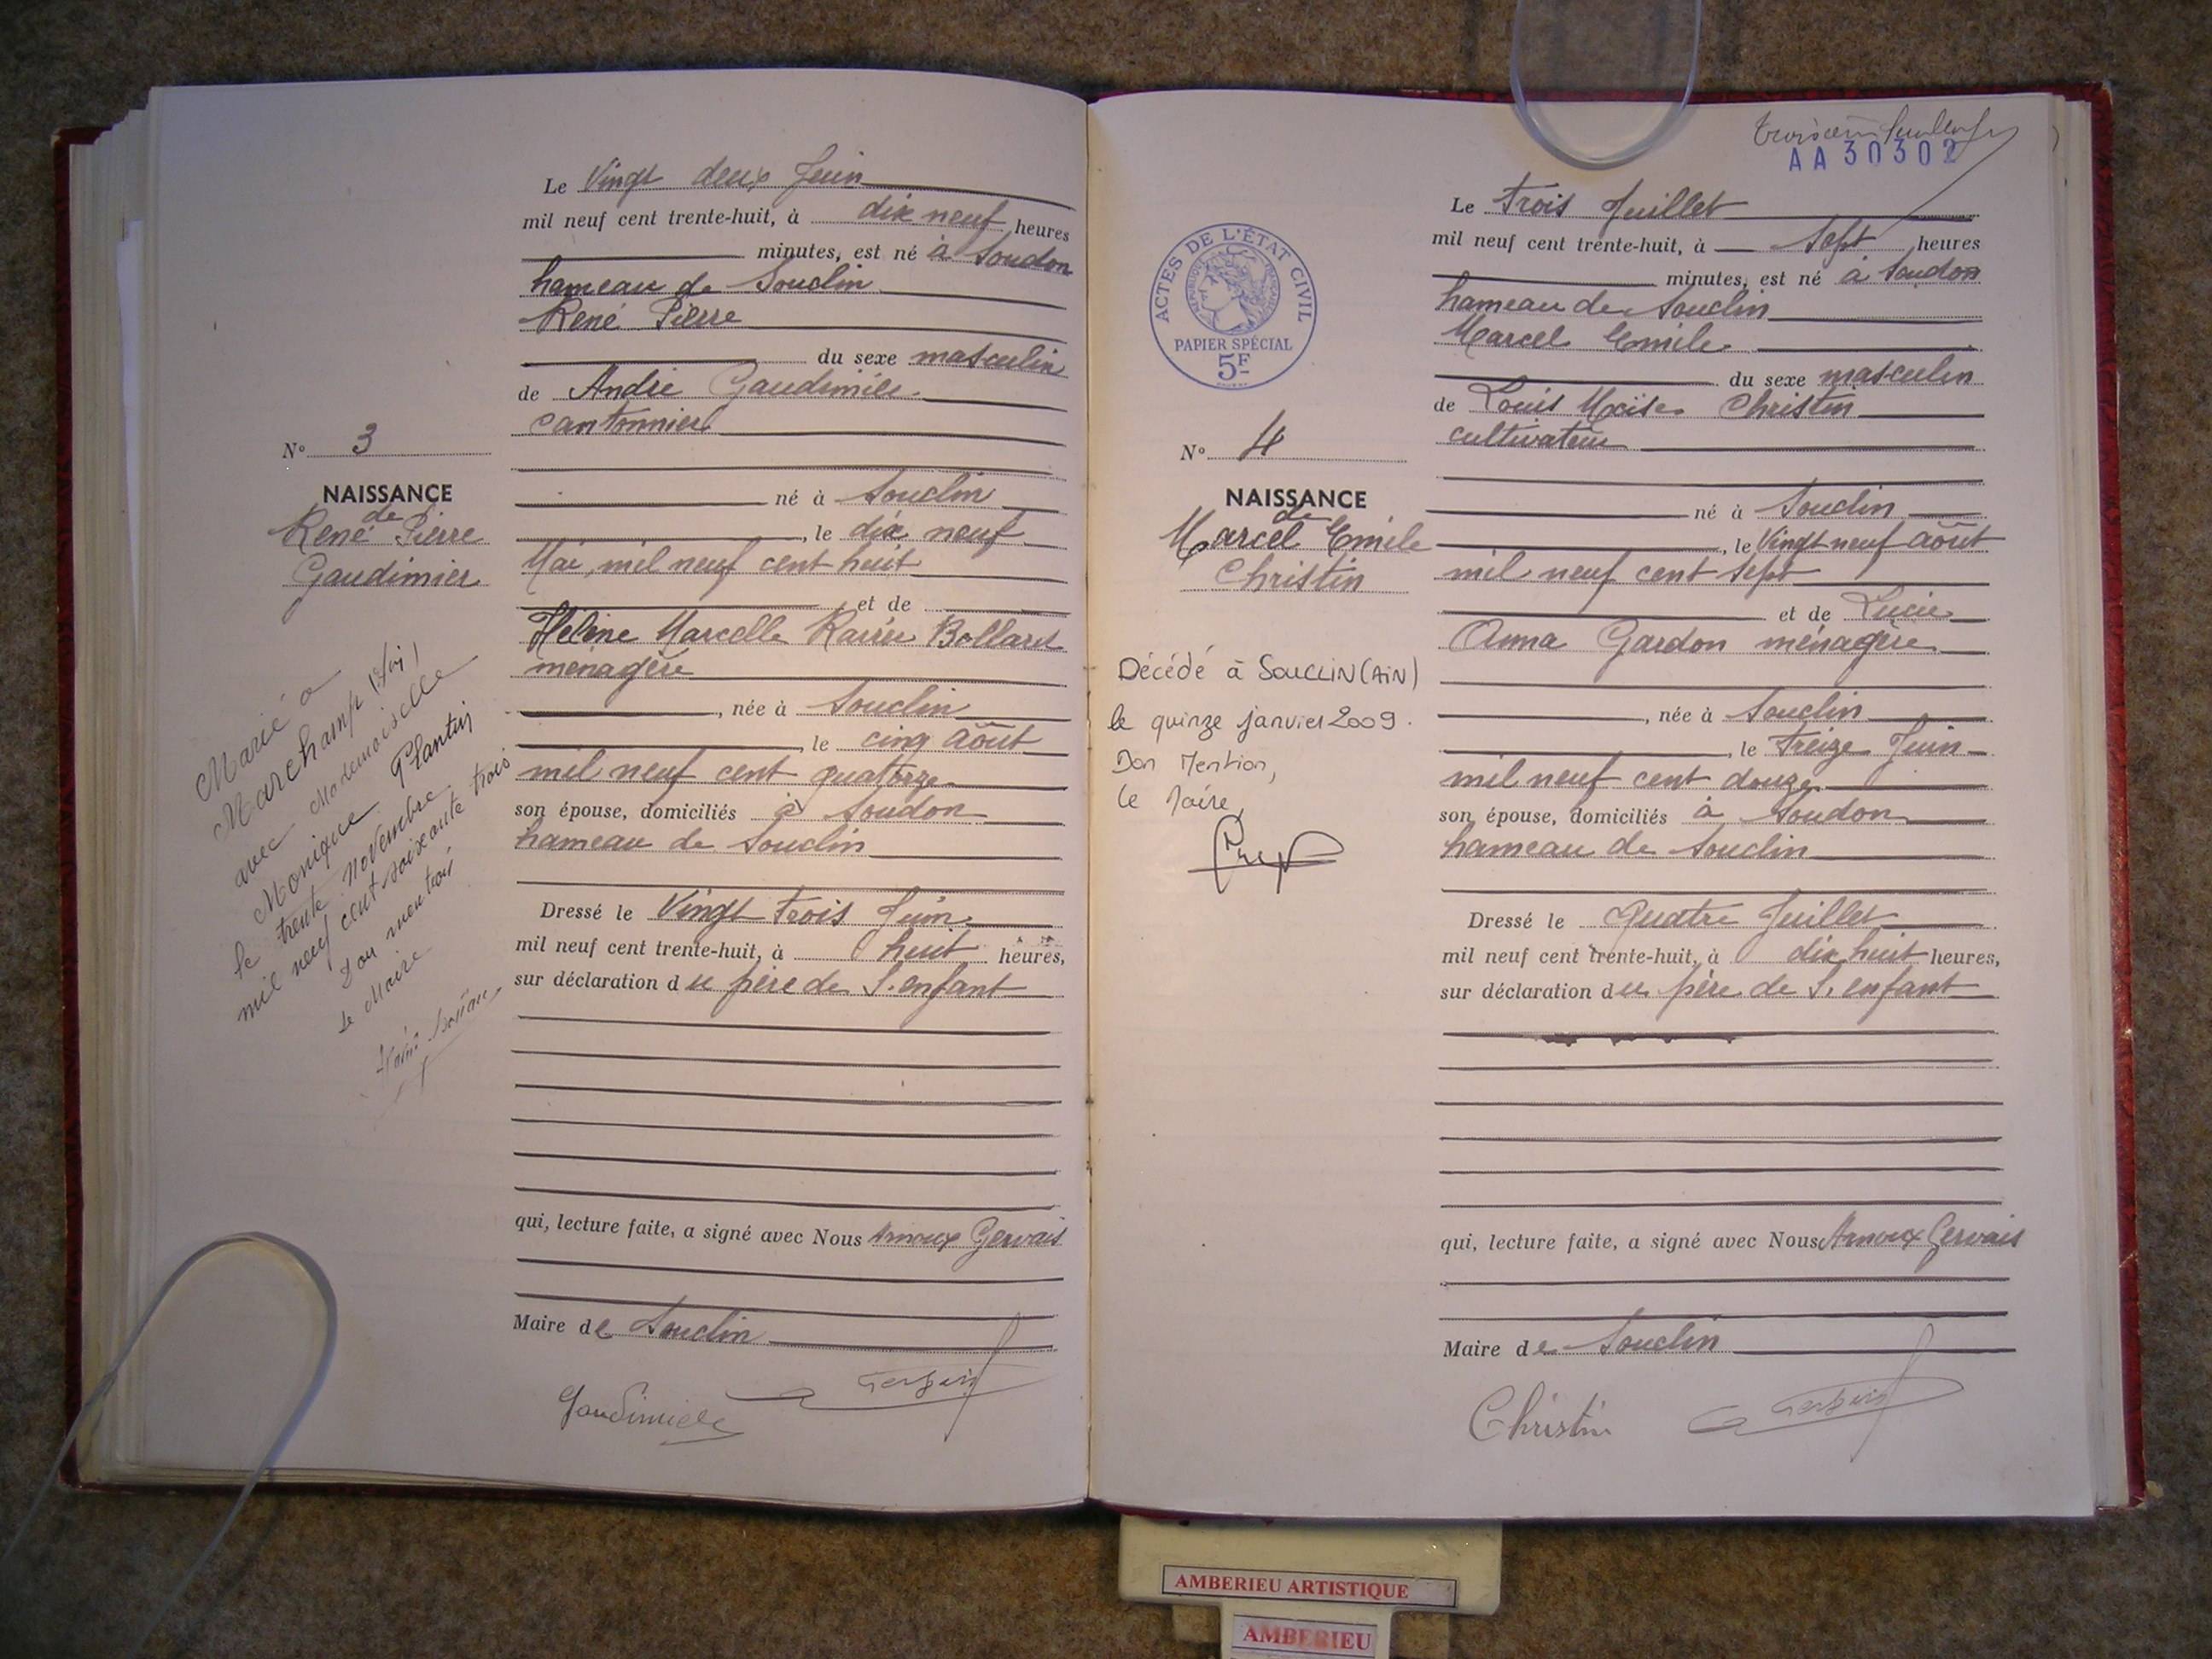 Le Vingt deux Juin
mil neuf cent trente-huit, à dix neuf heures
minutes, est né à Soudon
hameau de Souclin
René Pierre
du sexe masculin
de André Gaudimier
cantonnier
né à Souclin
, le dix neuf
Mai, mil neuf cent huit
et de
Hélène Marcelle Bollard
ménagère
, née à Souclin
, le cinq Août
mil neuf cent quatorze
son épouse, domiciliés à Soudon
hameau de Souclin
Dressé le Vingt trois Juin
mil neuf cent trente-huit, à huit heures,
sur déclaration du père de l'enfant
qui, lecture faite, a signé avec Nous Arnoux Gervais
Maire de Souclin
No 3
NAISSANCE
de
René Pierre
Gaudimier
Marié à
Marchamp (Ain)
avec Mademoiselle
Monique Plantin
le trente novembre
mil neuf cent soixante trois
Don mention
Le Maire
troisième
AA30302
Le trois Juillet
mil neuf cent trente-huit, à sept heures
minutes, est né à Soudon
hameau de Souclin
Marcel Emile
du sexe masculin
de Louis Moïse Christin
cultivateur
né à Souclin
, le Vingt neuf août
mil neuf cent sept
et de Lucie
Anna Gardon ménagère
, née à Souclin
, le treize Juin
mil neuf cent douze
son épouse, domiciliés à Soudon
hameau de Souclin
Dressé le Quatre Juillet
mil neuf cent trente-huit, à dix huit heures,
sur déclaration du père de l'enfant
qui, lecture faite, a signé avec Nous Arnoux Gervais
Maire de Souclin
Christin
ACTES DE L'ÉTAT CIVIL
RÉPUBLIQUE FRANÇAISE
PAPIER SPÉCIAL
5F
No 4
NAISSANCE
de
Marcel Emile
Christin
Décédé à SOUCLIN (AIN)
le quinze janvier 2009.
Don Mention,
Le Maire,
AMBERIEU ARTISTIQUE
AMBERIEU